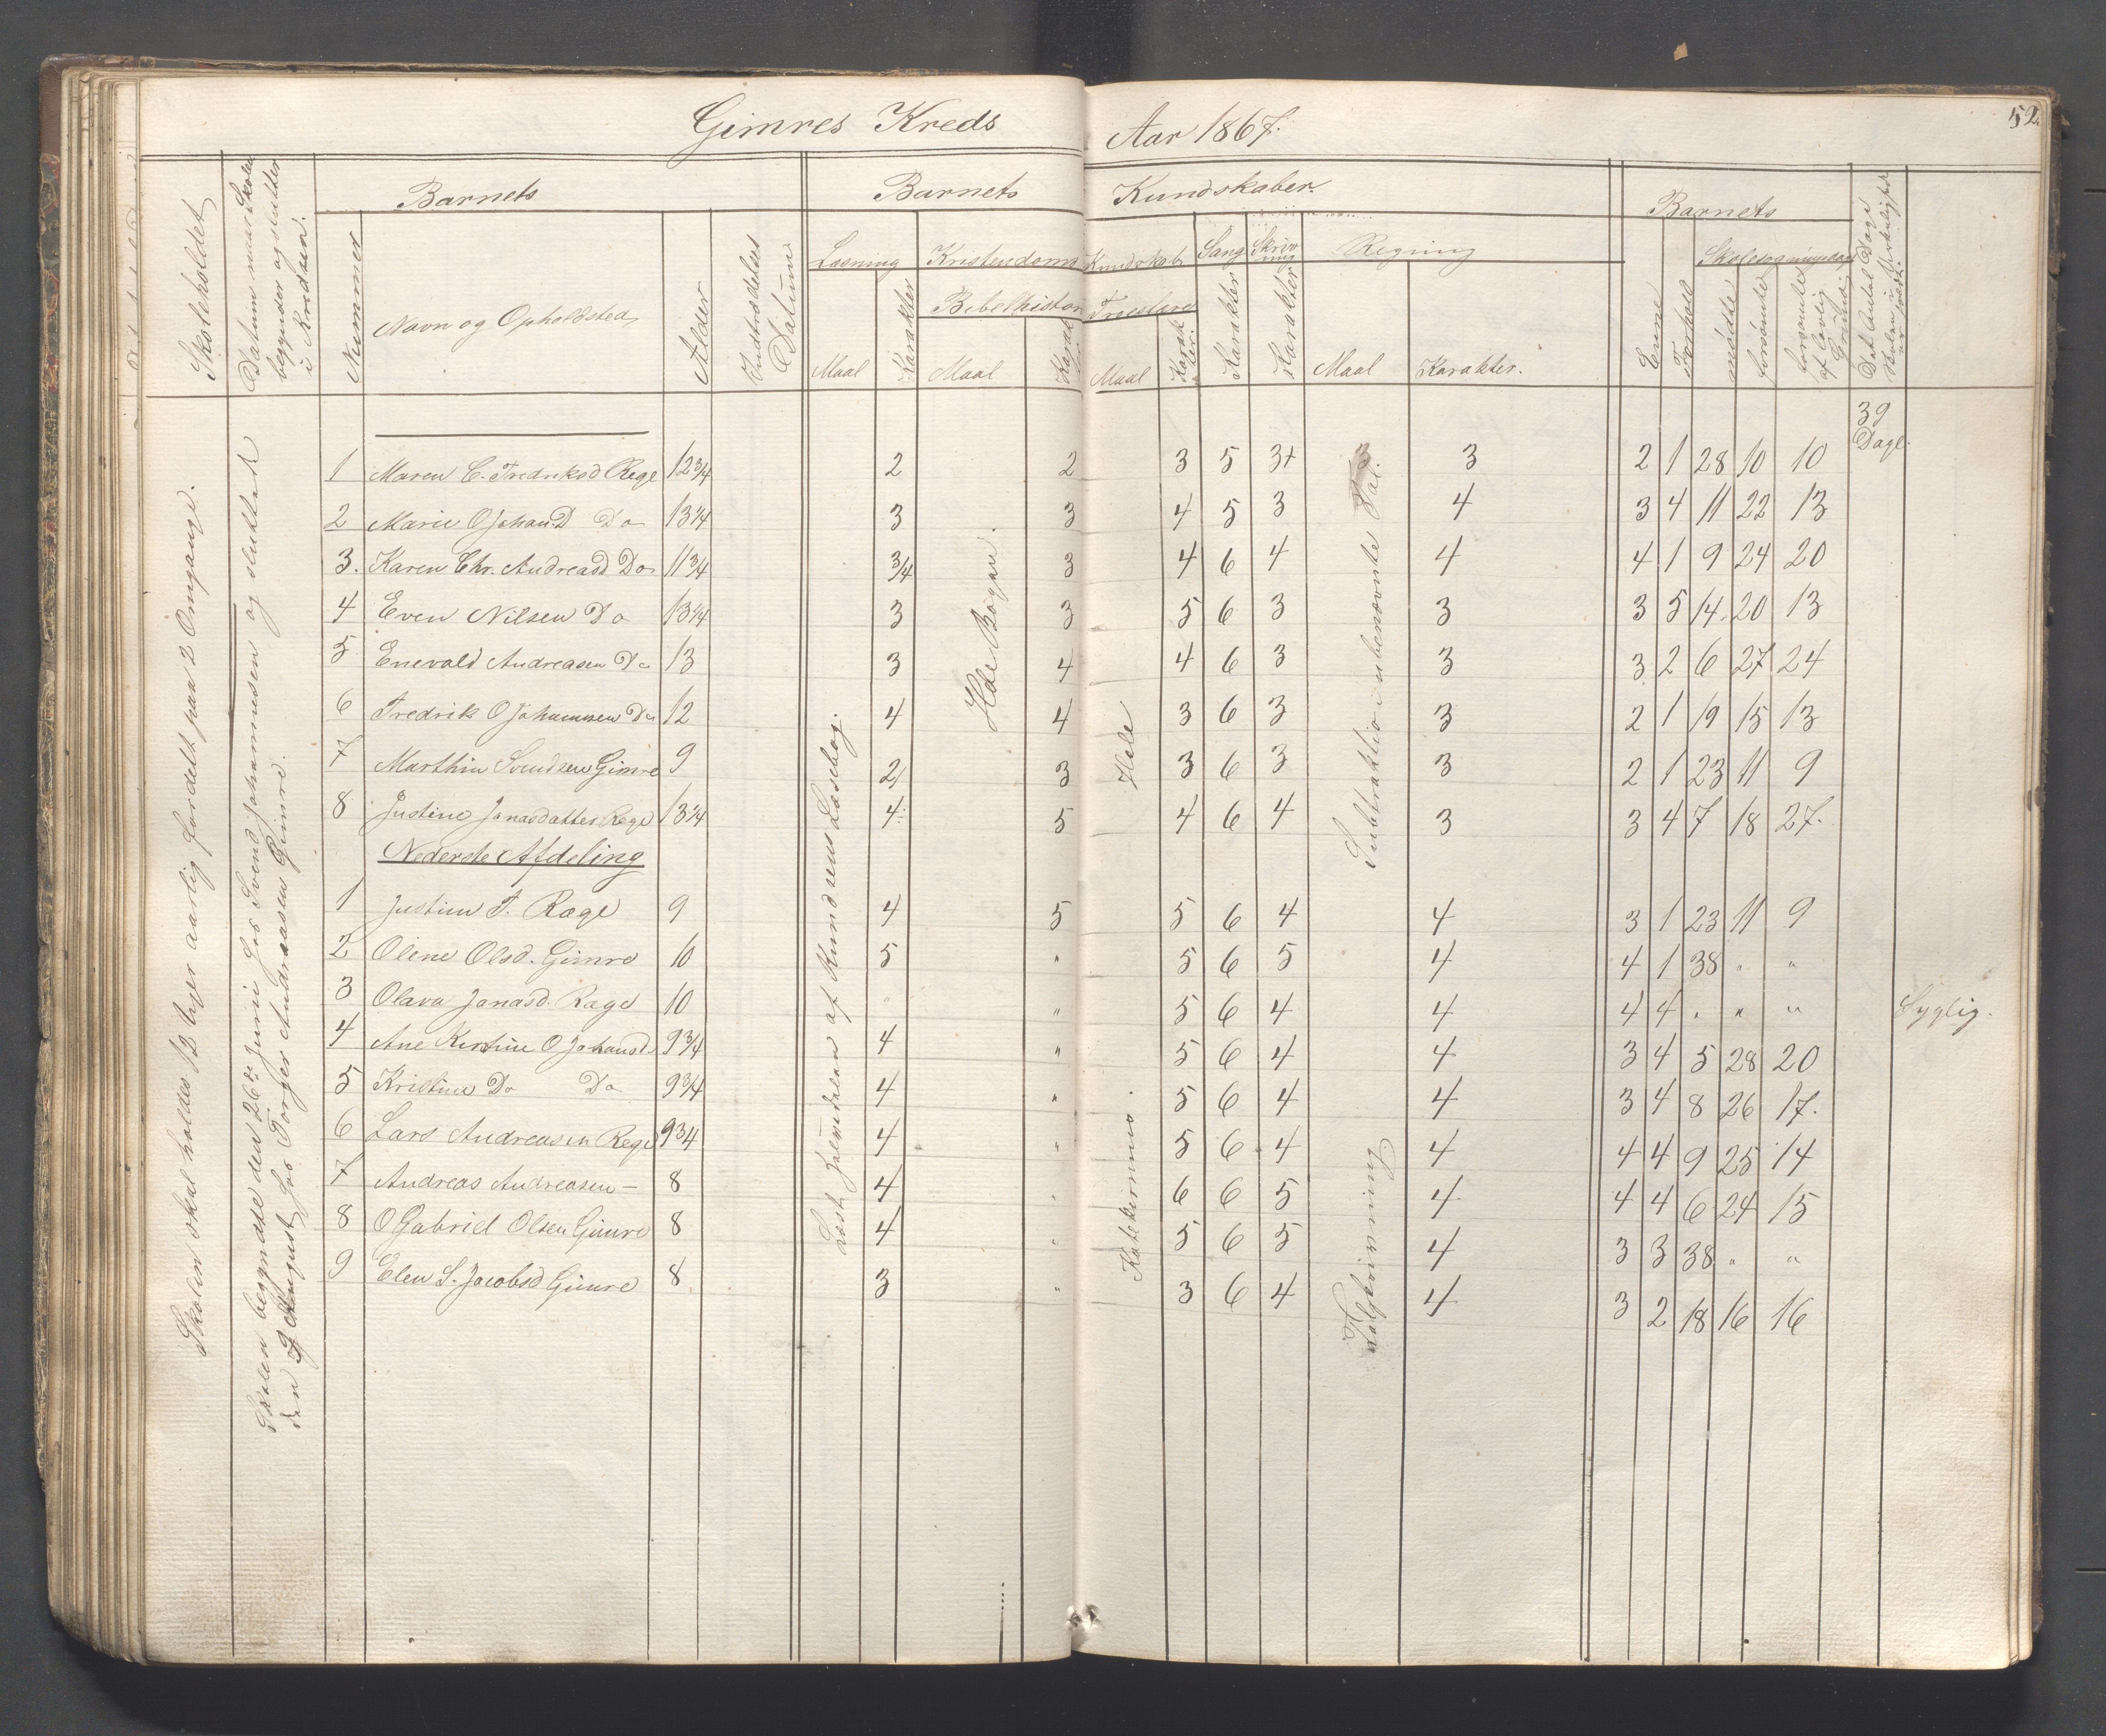 Gimres Kreds Aar 1867.
52
Skoleholdet
Datum naar Skolen
begynder og slutter
i Kredsen.
Barnets
Nummer
Navn og Opholdsted
Alder
Indtrædelses
Datum
Barnets Kundskaber.
Læsning
Maal
Karakter
Kristendoms Kundskab
Bibelhistorie
Maal
Karakter
Troeslære
Maal
Karakter
Sang
Karakter
Skrivning
Karakter
Regning
Maal
Karakter.
Barnets
Evne
Forhold
Skolesøgningsdage
mødte
forsømte
forsømte af lovlig Grund
Det Antal Dage
Skolen i Virkelighed
er holdt.
Skolen skal holdes 12 Uger aarlig fordelt paa 2 Omgange.
Skolen begyndte den 26de Juni hos Svend Johannesen og sluttet
den August hos Torger Andreassen Gimre.
Læst halvdelen af Knudsens Læsebog.
Hele Bogen.
Hele
Katekismus.
Subtraktio i ubenævnte Tal.
Talskrivning
39
Dage.
1 Maren C. Fredriksd Rege 12 3/4 2 2 3 5 3+ 3 3 2 1 28 10 10
2 Marie O Johan.D Do 13 1/4 3 3 4 5 3 4 3 4 11 22 13
3. Karen Chr. Andreasd Do 11 3/4 3/4 3 4 6 4 4 4 1 9 24 20
4 Even Nilsen Do 13 1/4 3 3 5 6 3 3 3 5 14 20 13
5 Enevald Andreasen Do 13 3 4 4 6 3 3 3 2 6 27 24
6 Fredrik O Johannsen Do 12 4 4 3 6 3 3 2 1 19 15 13
7 Marthin Svendsen Gimre 9 2 3 3 6 3 3 2 1 23 11 9
8 Justine Jonasdatter Rege 13 1/4 4 5 4 6 4 3 3 4 7 18 27.
Nederste Afdeling
1 Justine F. Rege 9 4 5 5 6 4 4 3 1 23 11 9
2 Olene Olsd. Gimre 10 5 " 5 6 5 4 4 1 38 " "
3 Olava Jonasd. Rage 10 " " 5 6 4 4 4 4 " " " Syglig.
4 Ane Kirstine O Johansd. 9 3/4 4 " 5 6 4 4 3 4 5 28 20
5 Kristine Do Do 9 3/4 4 " 5 6 4 4 3 4 8 26 17.
6 Lars Andreasen Rege 9 3/4 4 " 5 6 4 4 4 4 9 25 14
7 Andreas Andreasen — 8 4 " 6 6 5 4 4 4 6 24 15
8 O Gabriel Olsen Gimre 8 4 " 5 6 5 4 3 3 38 " "
9 Elen S. Jacobsd Gimre 8 3 " 3 6 4 4 3 2 18 16 16